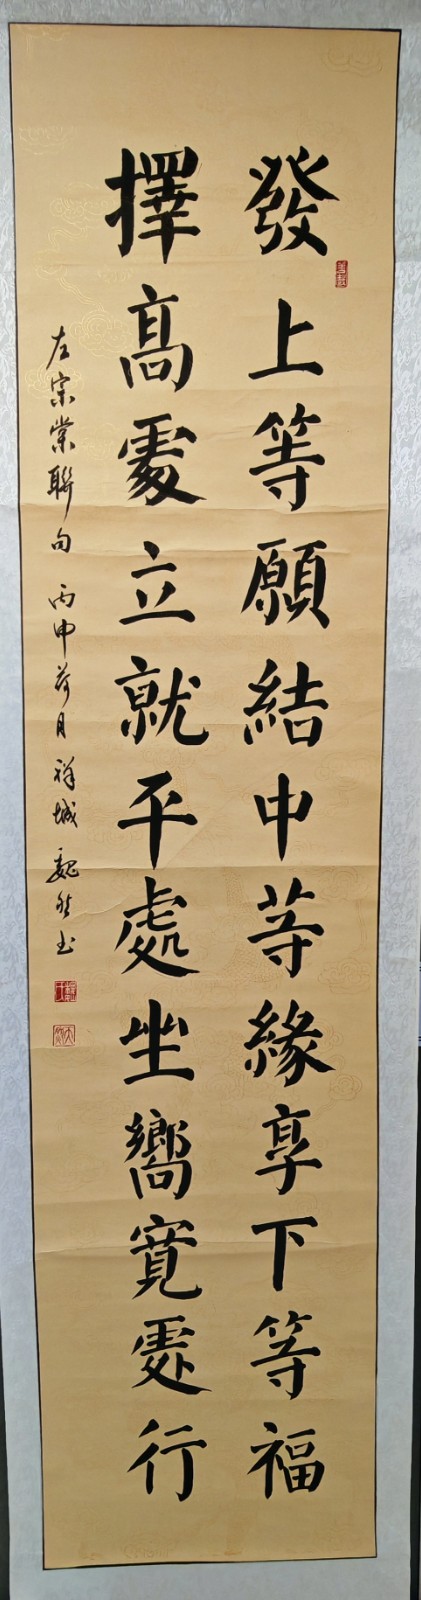 發上等願結中等緣享下等福
擇高處立就平處坐嚮寬處行
左宗棠聯句 丙申荷月 祥城 魏然書